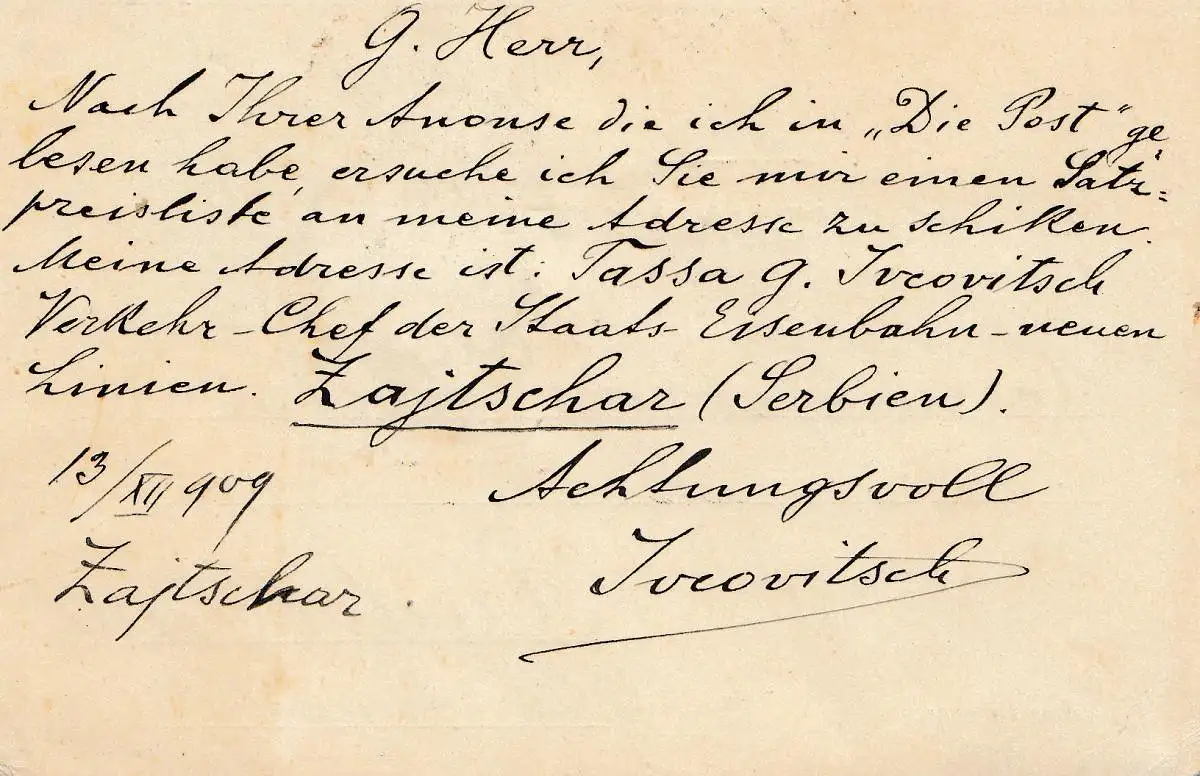 G. Herr,
Nach Ihrer Anonse die ich in „Die Post“ ge
lesen habe, ersuche ich Sie mir einen Satz-
preisliste an meine Adresse zu schiken.
Meine Adresse ist: Tassa G. Ivcovitsch
Verkehr-Chef der Staats-Eisenbahn-neuen
Linien. Zajtschar (Serbien).
13/XII 909 Achtungsvoll
Zajtschar. Ivcovitsch